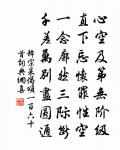 心空及第無階級
直下忘懷罪性空
一念廓然三際斷
千差萬別盡圓通
釋宗杲偈頌一百六十
首詞典網